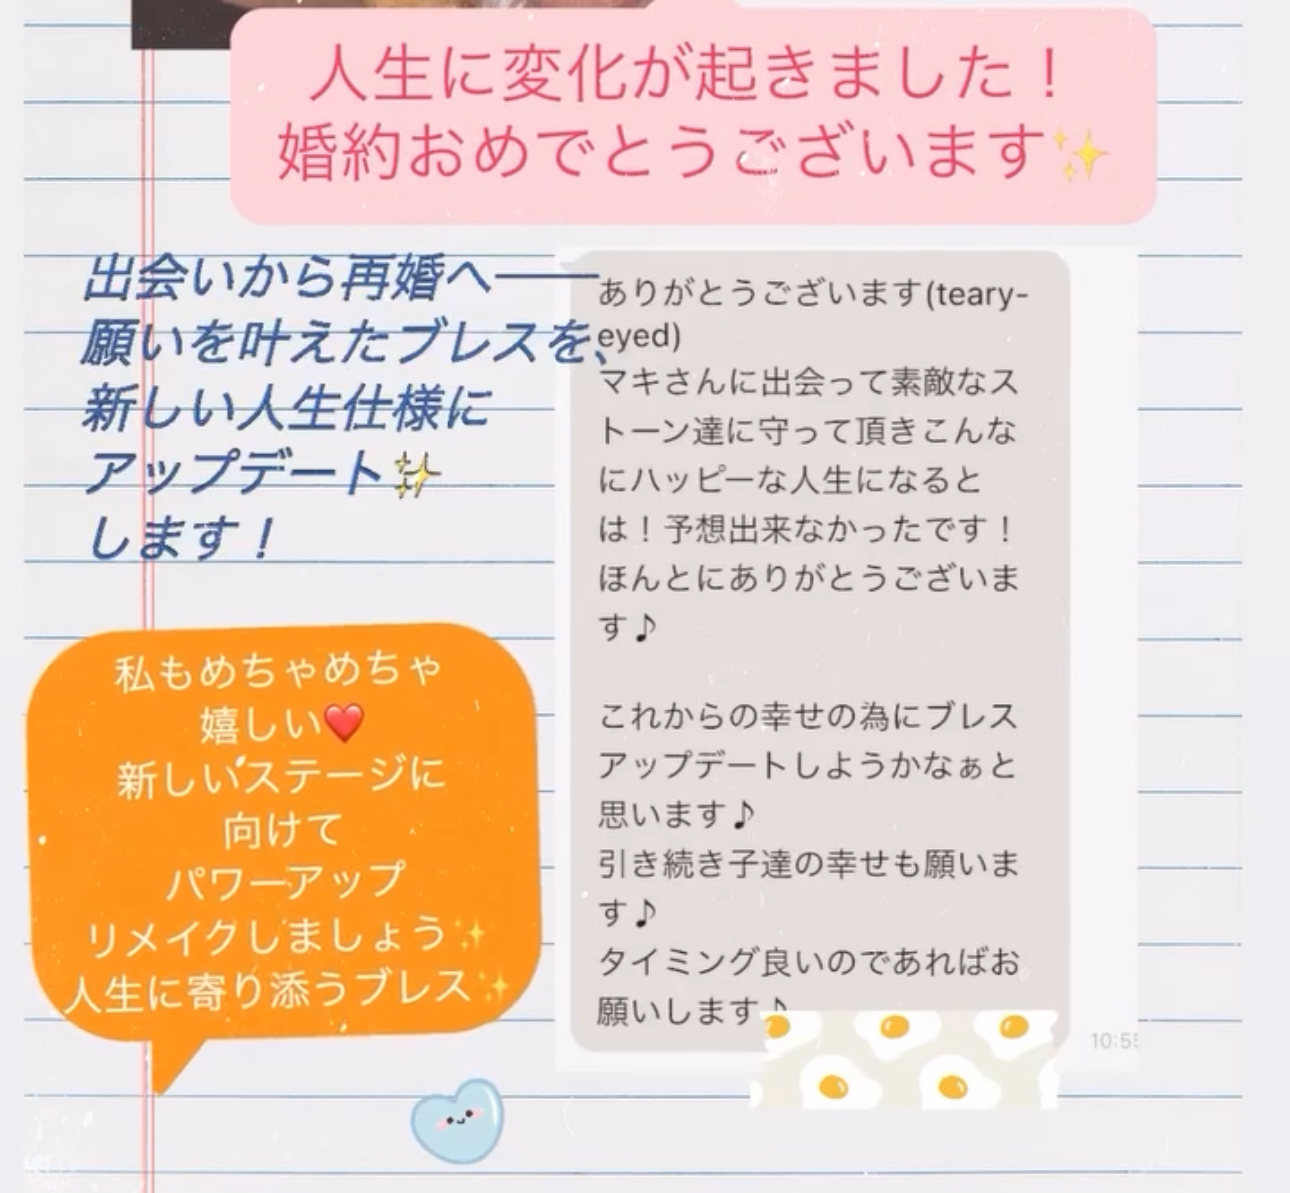 人生に変化が起きました！
婚約おめでとうございます✨
出会いから再婚へ——
願いを叶えたブレスを、
新しい人生仕様に
アップデート✨
します！
ありがとうございます(teary-
eyed)
マキさんに出会って素敵なス
トーン達に守って頂きこんな
にハッピーな人生になると
は！予想出来なかったです！
ほんとにありがとうございま
す♪
これからの幸せの為にブレス
アップデートしようかなぁと
思います♪
引き続き子達の幸せも願いま
す♪
タイミング良いのであればお
願いします♪
10:55
私もめちゃめちゃ
嬉しい❤️
新しいステージに
向けて
パワーアップ
リメイクしましょう✨
人生に寄り添うブレス✨